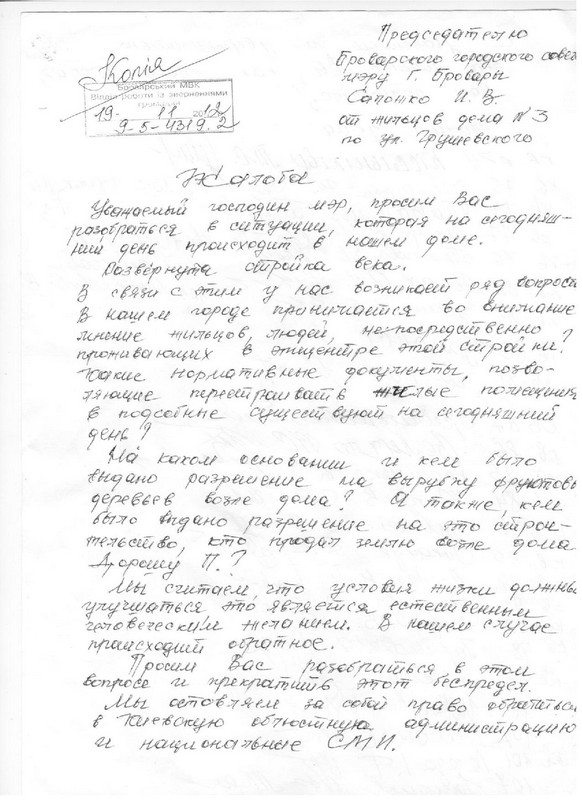 Копія
Броварський МВК
Відділ роботи із зверненнями
громадян
19. 11 2012
9-5-4319.2
Председателю
Броварского городского совета
мэру г. Бровары
Сапожко И. В.
от жильцов дома №3
по ул. Грушевского
Жалоба
Уважаемый господин мэр, просим Вас
разобраться в ситуации, которая на сегодняш-
ний день происходит в нашем доме.
Развёрнута стройка века.
В связи с этим у нас возникает ряд вопросов
В нашем городе принимается во внимание
мнение жильцов, людей, непосредственно
проживающих в эпицентре этой стройки?
Какие нормативные документы, позво-
ляющие перестраивать жилые помещения
в подсобные существуют на сегодняшний
день?
На каком основании и кем было
выдано разрешение на вырубку фруктовых
деревьев возле дома? А также, кем
было выдано разрешение на это строи-
тельство, кто продал землю возле дома
Дорошу П.?
Мы считаем, что условия жизни должны
улучшаться это является естественным
человеческим желанием. В нашем случае
происходит обратное.
Просим Вас разобраться в этом
вопросе и прекратить этот беспредел.
Мы оставляем за собой право обратиться
в Киевскую областную администрацию
и национальные СМИ.